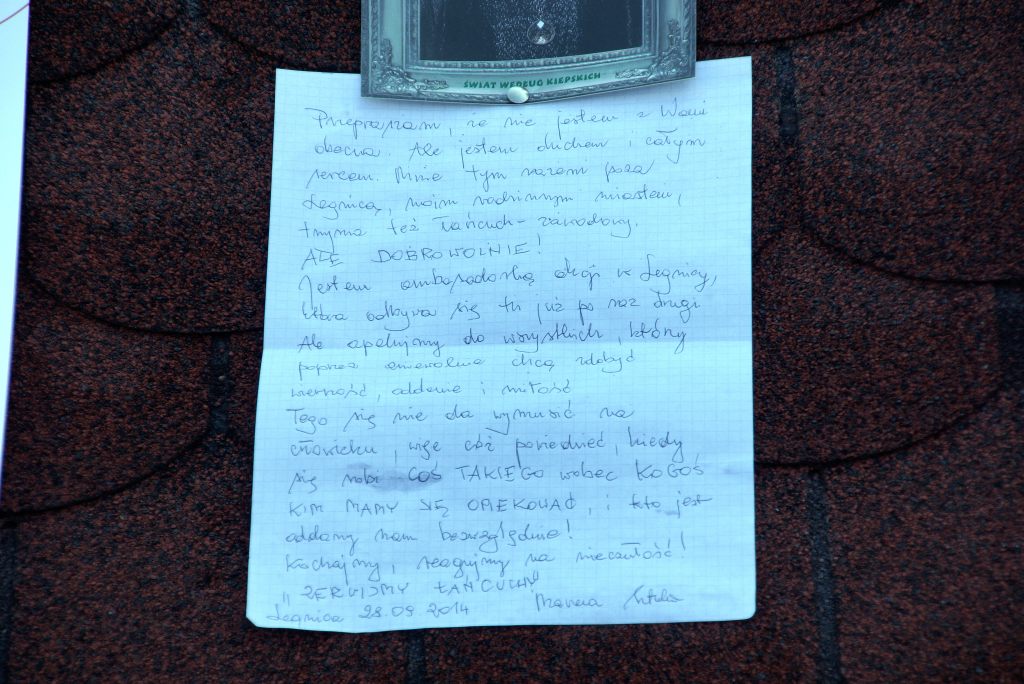 ŚWIAT WEDŁUG KIEPSKICH
Przepraszam, że nie jestem z Wami
obecna. Ale jestem duchem i całym
sercem. Mnie tym razem poza
Legnicą, moim rodzinnym miastem,
trzyma też łańcuch - zawodowy.
ALE DOBROWOLNIE!
Jestem ambasadorką akcji w Legnicy,
która odbywa się tu już po raz drugi
Ale apelujmy do wszystkich, którzy
poprzez zniewolenie chcą zdobyć
wierność, oddanie i miłość
Tego się nie da wymusić na
człowieku, więc cóż powiedzieć, kiedy
się robi COŚ TAKIEGO wobec KOGOŚ
KIM MAMY SIĘ OPIEKOWAĆ, i kto jest
oddany nam bezwzględnie!
Kochajmy, reagujmy na nieczułość!
„ZERWIJMY ŁAŃCUCHY"
Legnica 28.09 2014